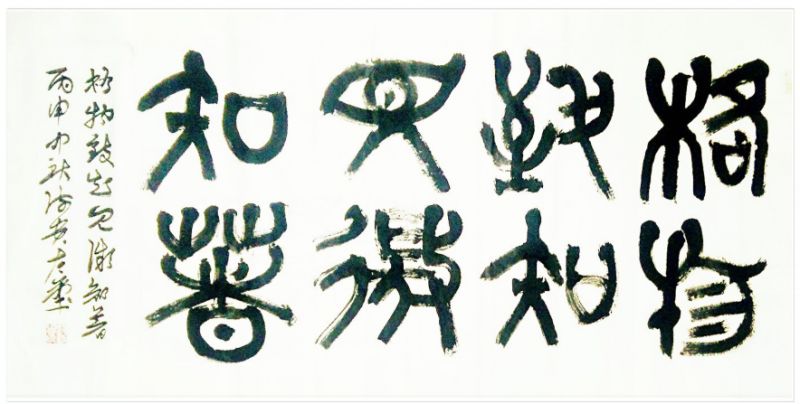 格物
致知
见微
知著
格物致知见微知著
丙申